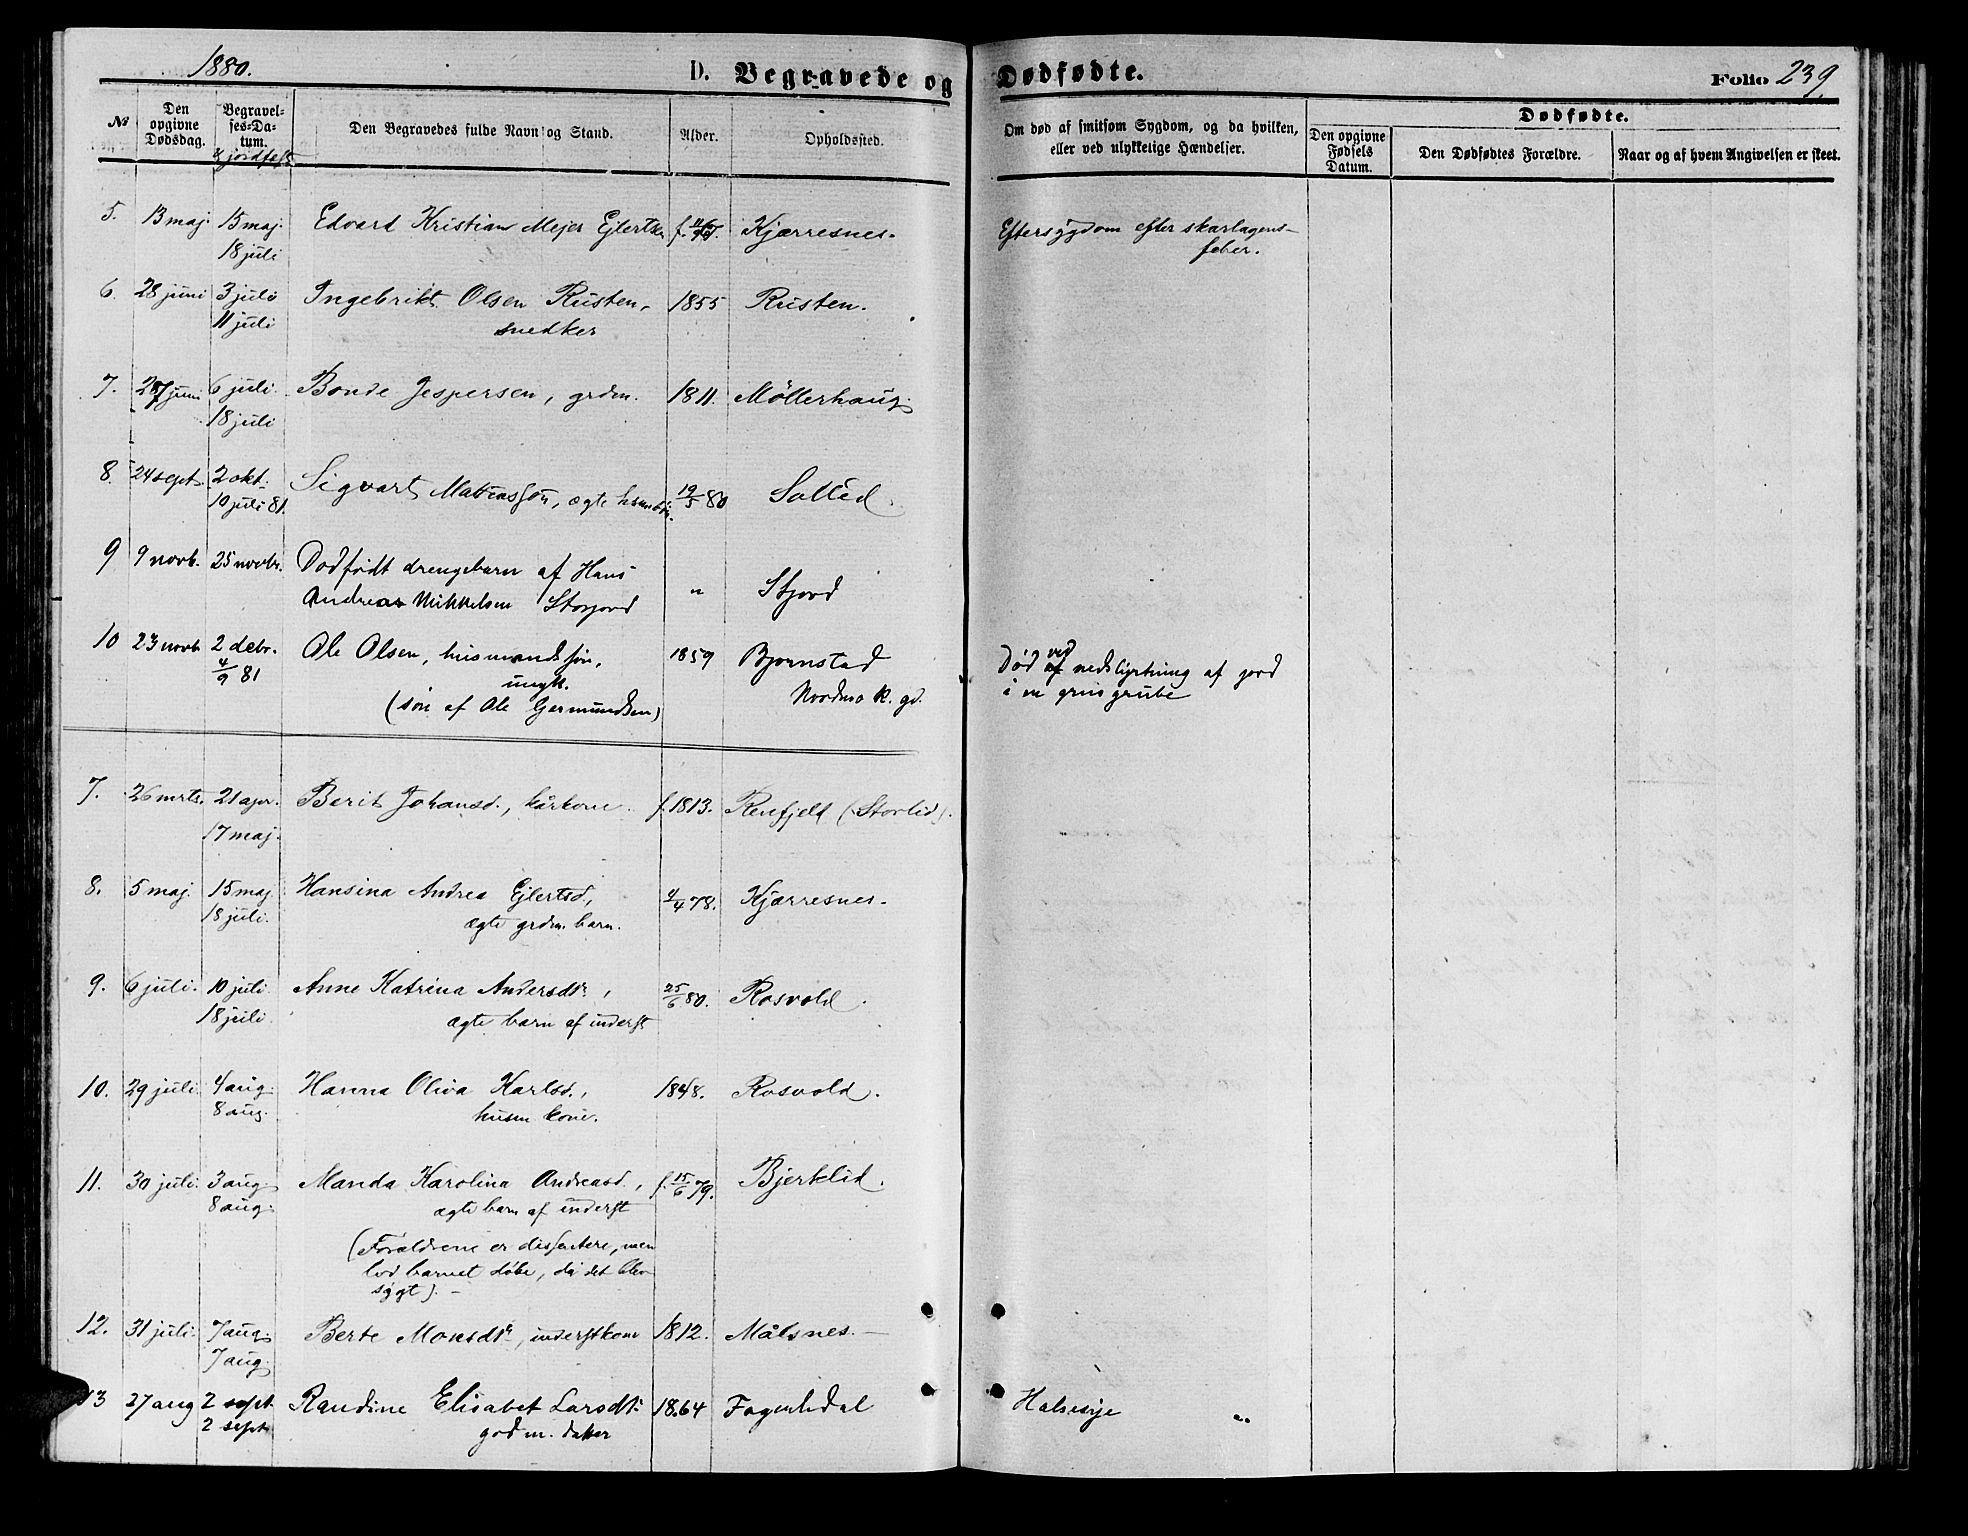 1880.
D. Begravede og Dødfødte.
Folio 239.
№
Den opgivne Dødsdag.
Begravelses-Datum. & jordfæst.
Den Begravedes fulde Navn og Stand.
Alder.
Opholdssted.
Om død af smitsom Sygdom, og da hvilken, eller ved ulykkelige Hændelser.
Dødfødte.
Den opgivne Fødsels Datum.
Den Dødfødtes Forældre.
Naar og af hvem Angivelsen er skeet.
5. 13 maj. 15 maj. Edvard Kristian Mejer Ejlertsen Kjærresnes. Eftersygdom efter skarlagens-
18 juli feber.
6. 28 juni 3 juli Ingebrikt Olsen Rusten, 1855 Rusten.
11 juli snedker
7. juni 6 juli Bonde Jespersen, grdm. 1811. Möllerhaug.
18 juli
8. 24 sept. 2 okt. Sigvart Matiassøn, ægte 19/5 80 Sollid.
10 juli 81.
9 9 novb. 25 novbr. Dødfødt drengebarn af Hans
Andreas Mikkelsen Storjord " Stjord
10 23 novb. 2 debr. Ole Olsen, husmandssøn, 1859 Bjørnstad Død ved nedstyrtning af jord
4/9 81 ungk. Nordmo k. gd. i en grusgrube
(søn af Ole Germundsen)
7. 26 mrts. 21 apr. Berit Johansd., kårkone. f. 1813. Renfjeld (Storlid).
17 maj.
8. 5 maj. 15 maj Hansina Andrea Ejlertsd., 4/4 78. Kjærresnes.
18 juli. ægte grdm. barn.
9. 6 juli. 10 juli Anne Katrina Andersdtr., 25/6 80. Rosvold.
18 juli. ægte barn af inderst
10. 29 juli. 4 aug. Hanna Oliva Karlsd., 1848. Rosvold.
8 aug. husm kone.
11. 30 juli. 3 aug. Manda Karolina Andreasd., f. 15/6 79. Bjerklid.
8 aug. ægte barn af inderst
(Forældrene er dissentere, men
lod barnet døbe, da det blev
sygt). –
12. 31 juli. 7 aug. Berte Monsdtr, inderstkone 1812. Målsnes. –
7 aug.
13 27 aug 2 sept Randine Elisabet Larsdtr 1864 Fagerlidal Halssyge "
2 sept gdm. datter